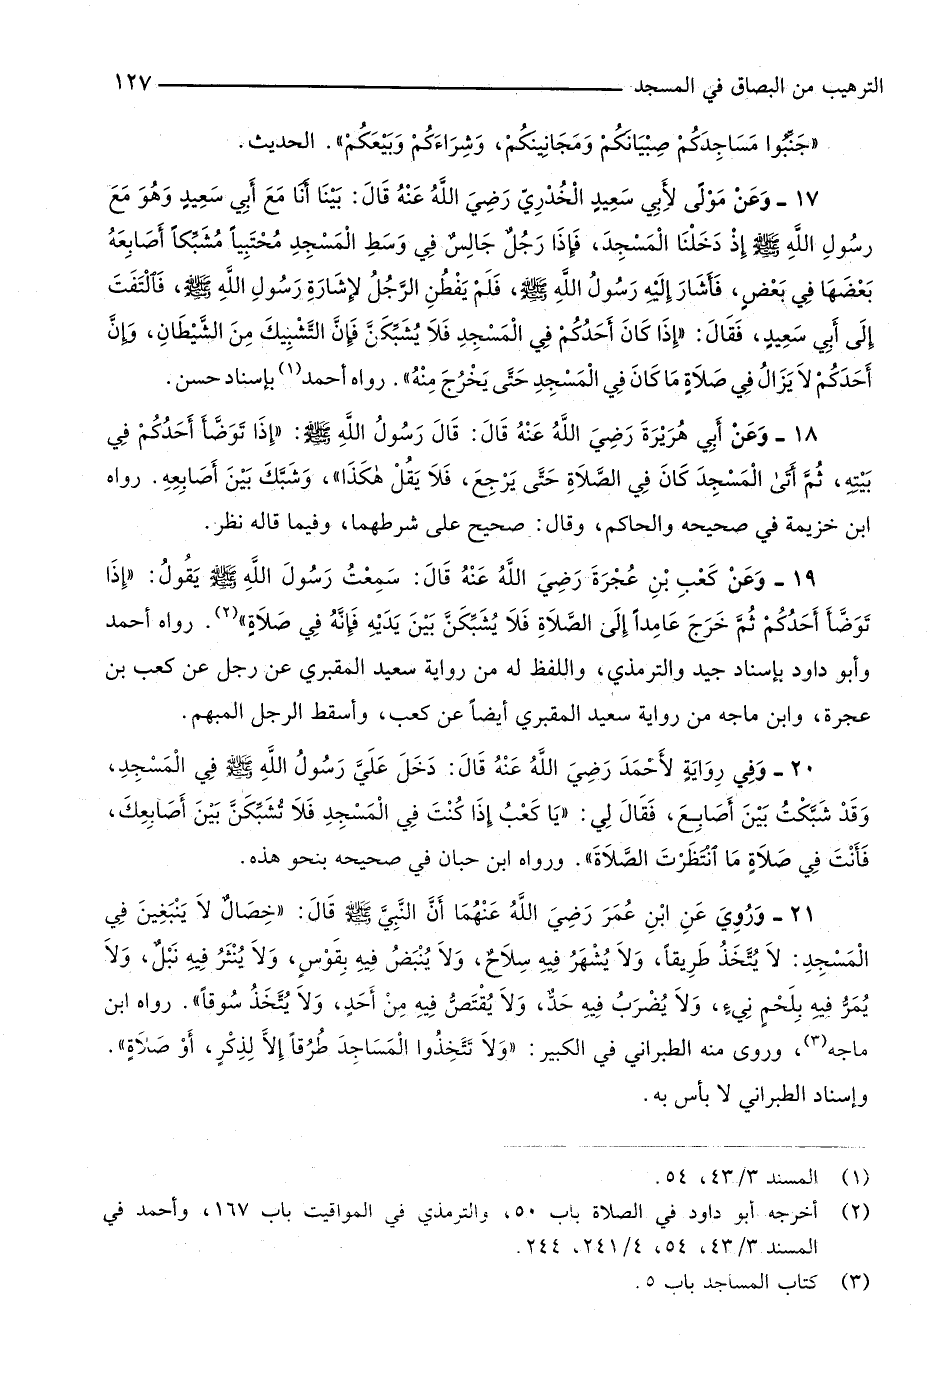 الترهيب من البصاق في المسجد ـــــــــــــــــــــــــــــــ ١٢٧
«جَنِّبُوا مَسَاجِدَكُمْ صِبْيَانَكُمْ وَمَجَانِينَكُمْ، وَشِرَاءَكُمْ وَبَيْعَكُمْ». الحديث.
١٧ ـ وَعَنْ مَوْلًى لأَبِي سَعِيدٍ الْخُدْرِيِّ رَضِيَ اللَّهُ عَنْهُ قَالَ: بَيْنَا أَنَا مَعَ أَبِي سَعِيدٍ وَهُوَ مَعَ
رسُولِ اللَّهِ ﷺ إِذْ دَخَلْنَا الْمَسْجِدَ، فَإِذَا رَجُلٌ جَالِسٌ فِي وَسَطِ الْمَسْجِدِ مُحْتَبِياً مُشَبِّكاً أَصَابِعَهُ
بَعْضَهَا فِي بَعْضٍ، فَأَشَارَ إِلَيْهِ رَسُولُ اللَّهِ ﷺ، فَلَمْ يَفْطُنِ الرَّجُلُ لِإشَارَةِ رَسُولِ اللَّهِ ﷺ، فَٱلْتَفَتَ
إِلَى أَبِي سَعِيدٍ، فَقَالَ: «إِذَا كَانَ أَحَدُكُمْ فِي الْمَسْجِدِ فَلاَ يُشَبِّكَنَّ فَإِنَّ التَّشْبِيكَ مِنَ الشَّيْطَانِ، وَإِنَّ
أَحَدَكُمْ لاَ يَزَالُ فِي صَلاَةٍ مَا كَانَ فِي الْمَسْجِدِ حَتَّى يَخْرُجَ مِنْهُ». رواه أحمد(١) بإسناد حسن.
١٨ ـ وَعَنْ أَبِي هُرَيْرَةَ رَضِيَ اللَّهُ عَنْهُ قَالَ: قَالَ رَسُولُ اللَّهِ ﷺ: «إِذَا تَوَضَّأَ أَحَدُكُمْ فِي
بَيْتِهِ، ثُمَّ أَتَىٰ الْمَسْجِدَ كَانَ فِي الصَّلاَةِ حَتَّى يَرْجِعَ، فَلاَ يَقُلْ هٰكَذَا»، وَشَبَّكَ بَيْنَ أَصَابِعِهِ. رواه
ابن خزيمة في صحيحه والحاكم، وقال: صحيح على شرطهما، وفيما قاله نظر.
١٩ ـ وَعَنْ كَعْبِ بْنِ عُجْرَةَ رَضِيَ اللَّهُ عَنْهُ قَالَ: سَمِعْتُ رَسُولَ اللَّهِ ﷺ يَقُولُ: «إِذَا
تَوَضَّأَ أَحَدُكُمْ ثُمَّ خَرَجَ عَامِداً إِلَىٰ الصَّلاَةِ فَلاَ يُشَبِّكَنَّ بَيْنَ يَدَيْهِ فَإِنَّهُ فِي صَلاَةٍ»(٢). رواه أحمد
وأبو داود بإسناد جيد والترمذي، واللفظ له من رواية سعيد المقبري عن رجل عن كعب بن
عجرة، وابن ماجه من رواية سعيد المقبري أيضاً عن كعب، وأسقط الرجل المبهم.
٢٠ ـ وَفِي رِوَايَةٍ لأَحْمَدَ رَضِيَ اللَّهُ عَنْهُ قَالَ: دَخَلَ عَلَيَّ رَسُولُ اللَّهِ ﷺ فِي الْمَسْجِدِ،
وَقَدْ شَبَّكْتُ بَيْنَ أَصَابِعَ، فَقَالَ لِي: «يَا كَعْبُ إِذَا كُنْتَ فِي الْمَسْجِدِ فَلاَ تُشَبِّكَنَّ بَيْنَ أَصَابِعِكَ،
فَأَنْتَ فِي صَلاَةٍ مَا ٱنْتَظَرْتَ الصَّلاَةَ». ورواه ابن حبان في صحيحه بنحو هذه.
٢١ ـ وَرُوِيَ عَنِ ابْنِ عُمَرَ رَضِيَ اللَّهُ عَنْهُمَا أَنَّ النَّبِيَّ ﷺ قَالَ: «خِصَالٌ لاَ يَنْبَغِينَ فِي
الْمَسْجِدِ: لاَ يُتَّخَذُ طَرِيقاً، وَلاَ يُشْهَرُ فِيهِ سِلاَحٌ، وَلاَ يُنْبَضُ فِيهِ بِقَوْسٍ، وَلاَ يُنْثَرُ فِيهِ نَبْلٌ، وَلاَ
يُمَرُّ فِيهِ بِلَحْمٍ نِيءٍ، وَلاَ يُضْرَبُ فِيهِ حَدٌّ، وَلاَ يُقْتَصُّ فِيهِ مِنْ أَحَدٍ، وَلاَ يُتَّخَذُ سُوقاً». رواه ابن
ماجه(٣)، وروى منه الطبراني في الكبير: «وَلاَ تَتَّخِذُوا الْمَسَاجِدَ طُرُقاً إِلاَّ لِذِكْرٍ، أَوْ صَلاَةٍ».
وإسناد الطبراني لا بأس به.
(١) المسند ٤٣/٣، ٥٤.
(٢) أخرجه أبو داود في الصلاة باب ٥٠، والترمذي في المواقيت باب ١٦٧، وأحمد في
المسند ٤٣/٣، ٥٤، ٢٤١/٤، ٢٤٤.
(٣) كتاب المساجد باب ٥.